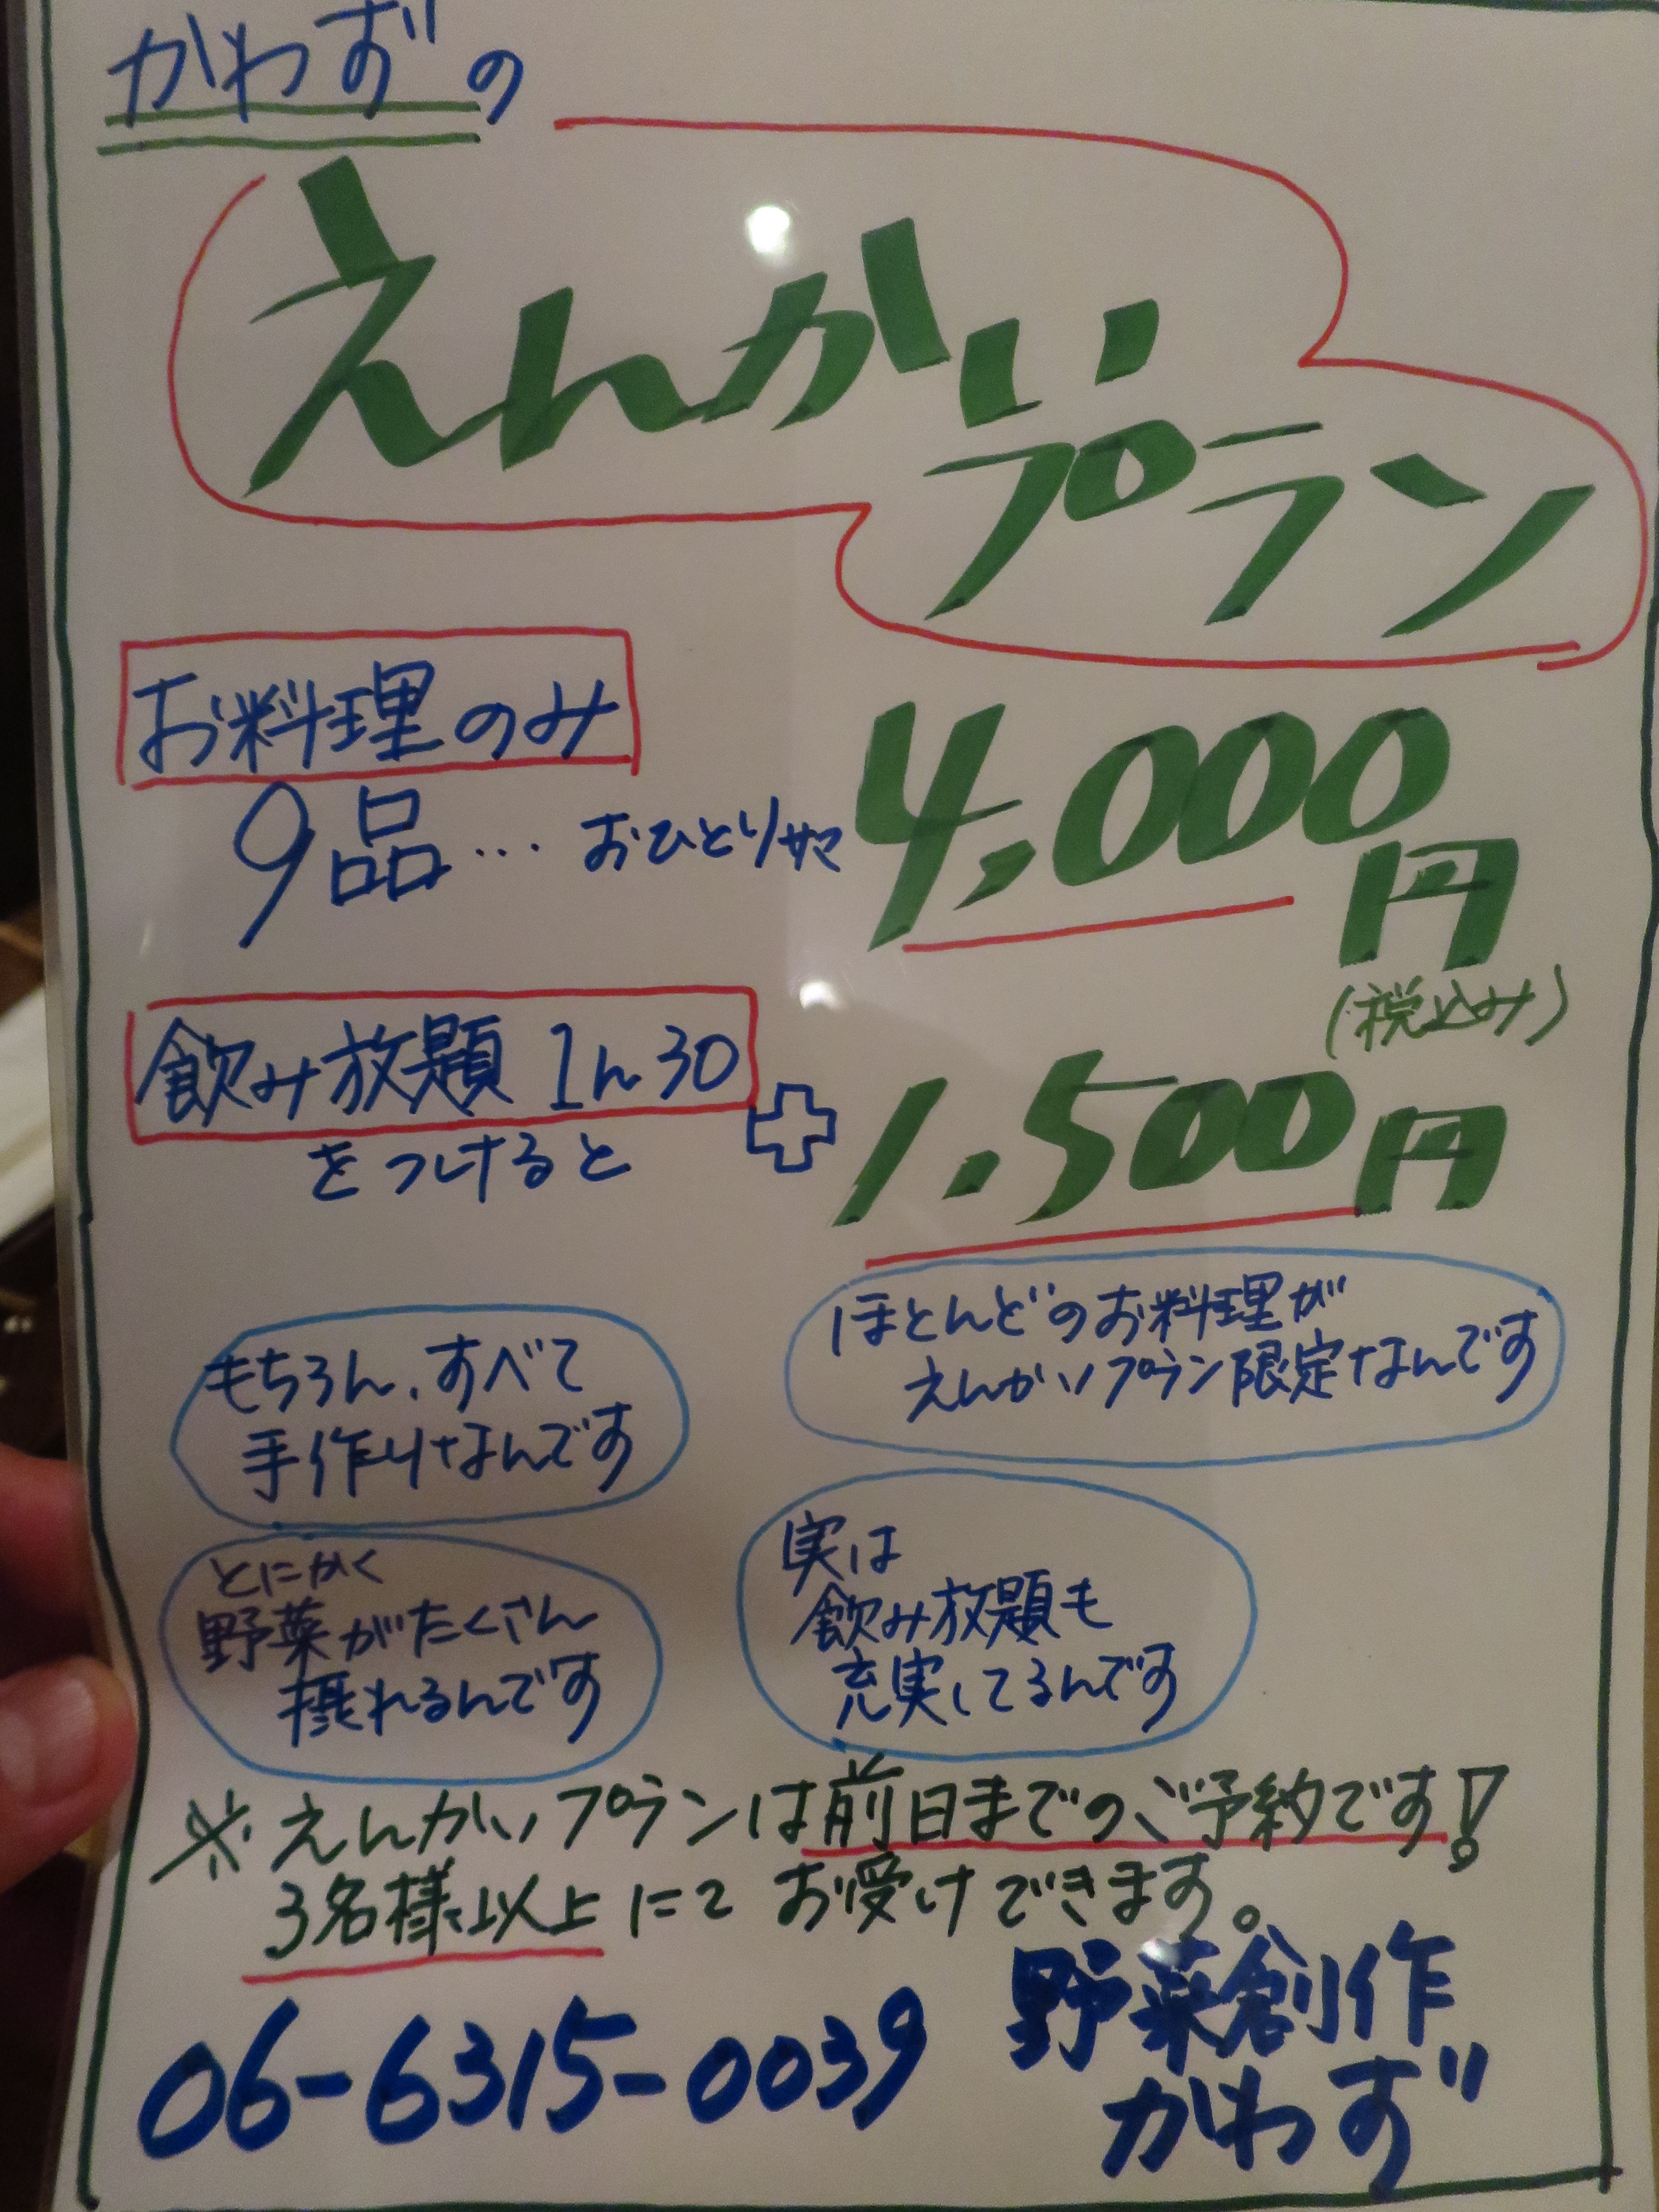 かわずの
えんかい
プラン
お料理のみ
9品… おひとりサマ 4,000円
(税込み)
飲み放題 1h30
をつけると
+1.500円
もちろん、すべて
手作りなんです
ほとんどのお料理が
えんかいプラン限定なんです
とにかく
野菜がたくさん
摂れるんです
実は
飲み放題も
充実してるんです
※えんかいプランは前日までのご予約です!
3名様以上にてお受けできます。
06-6315-0039
野菜創作
かわず